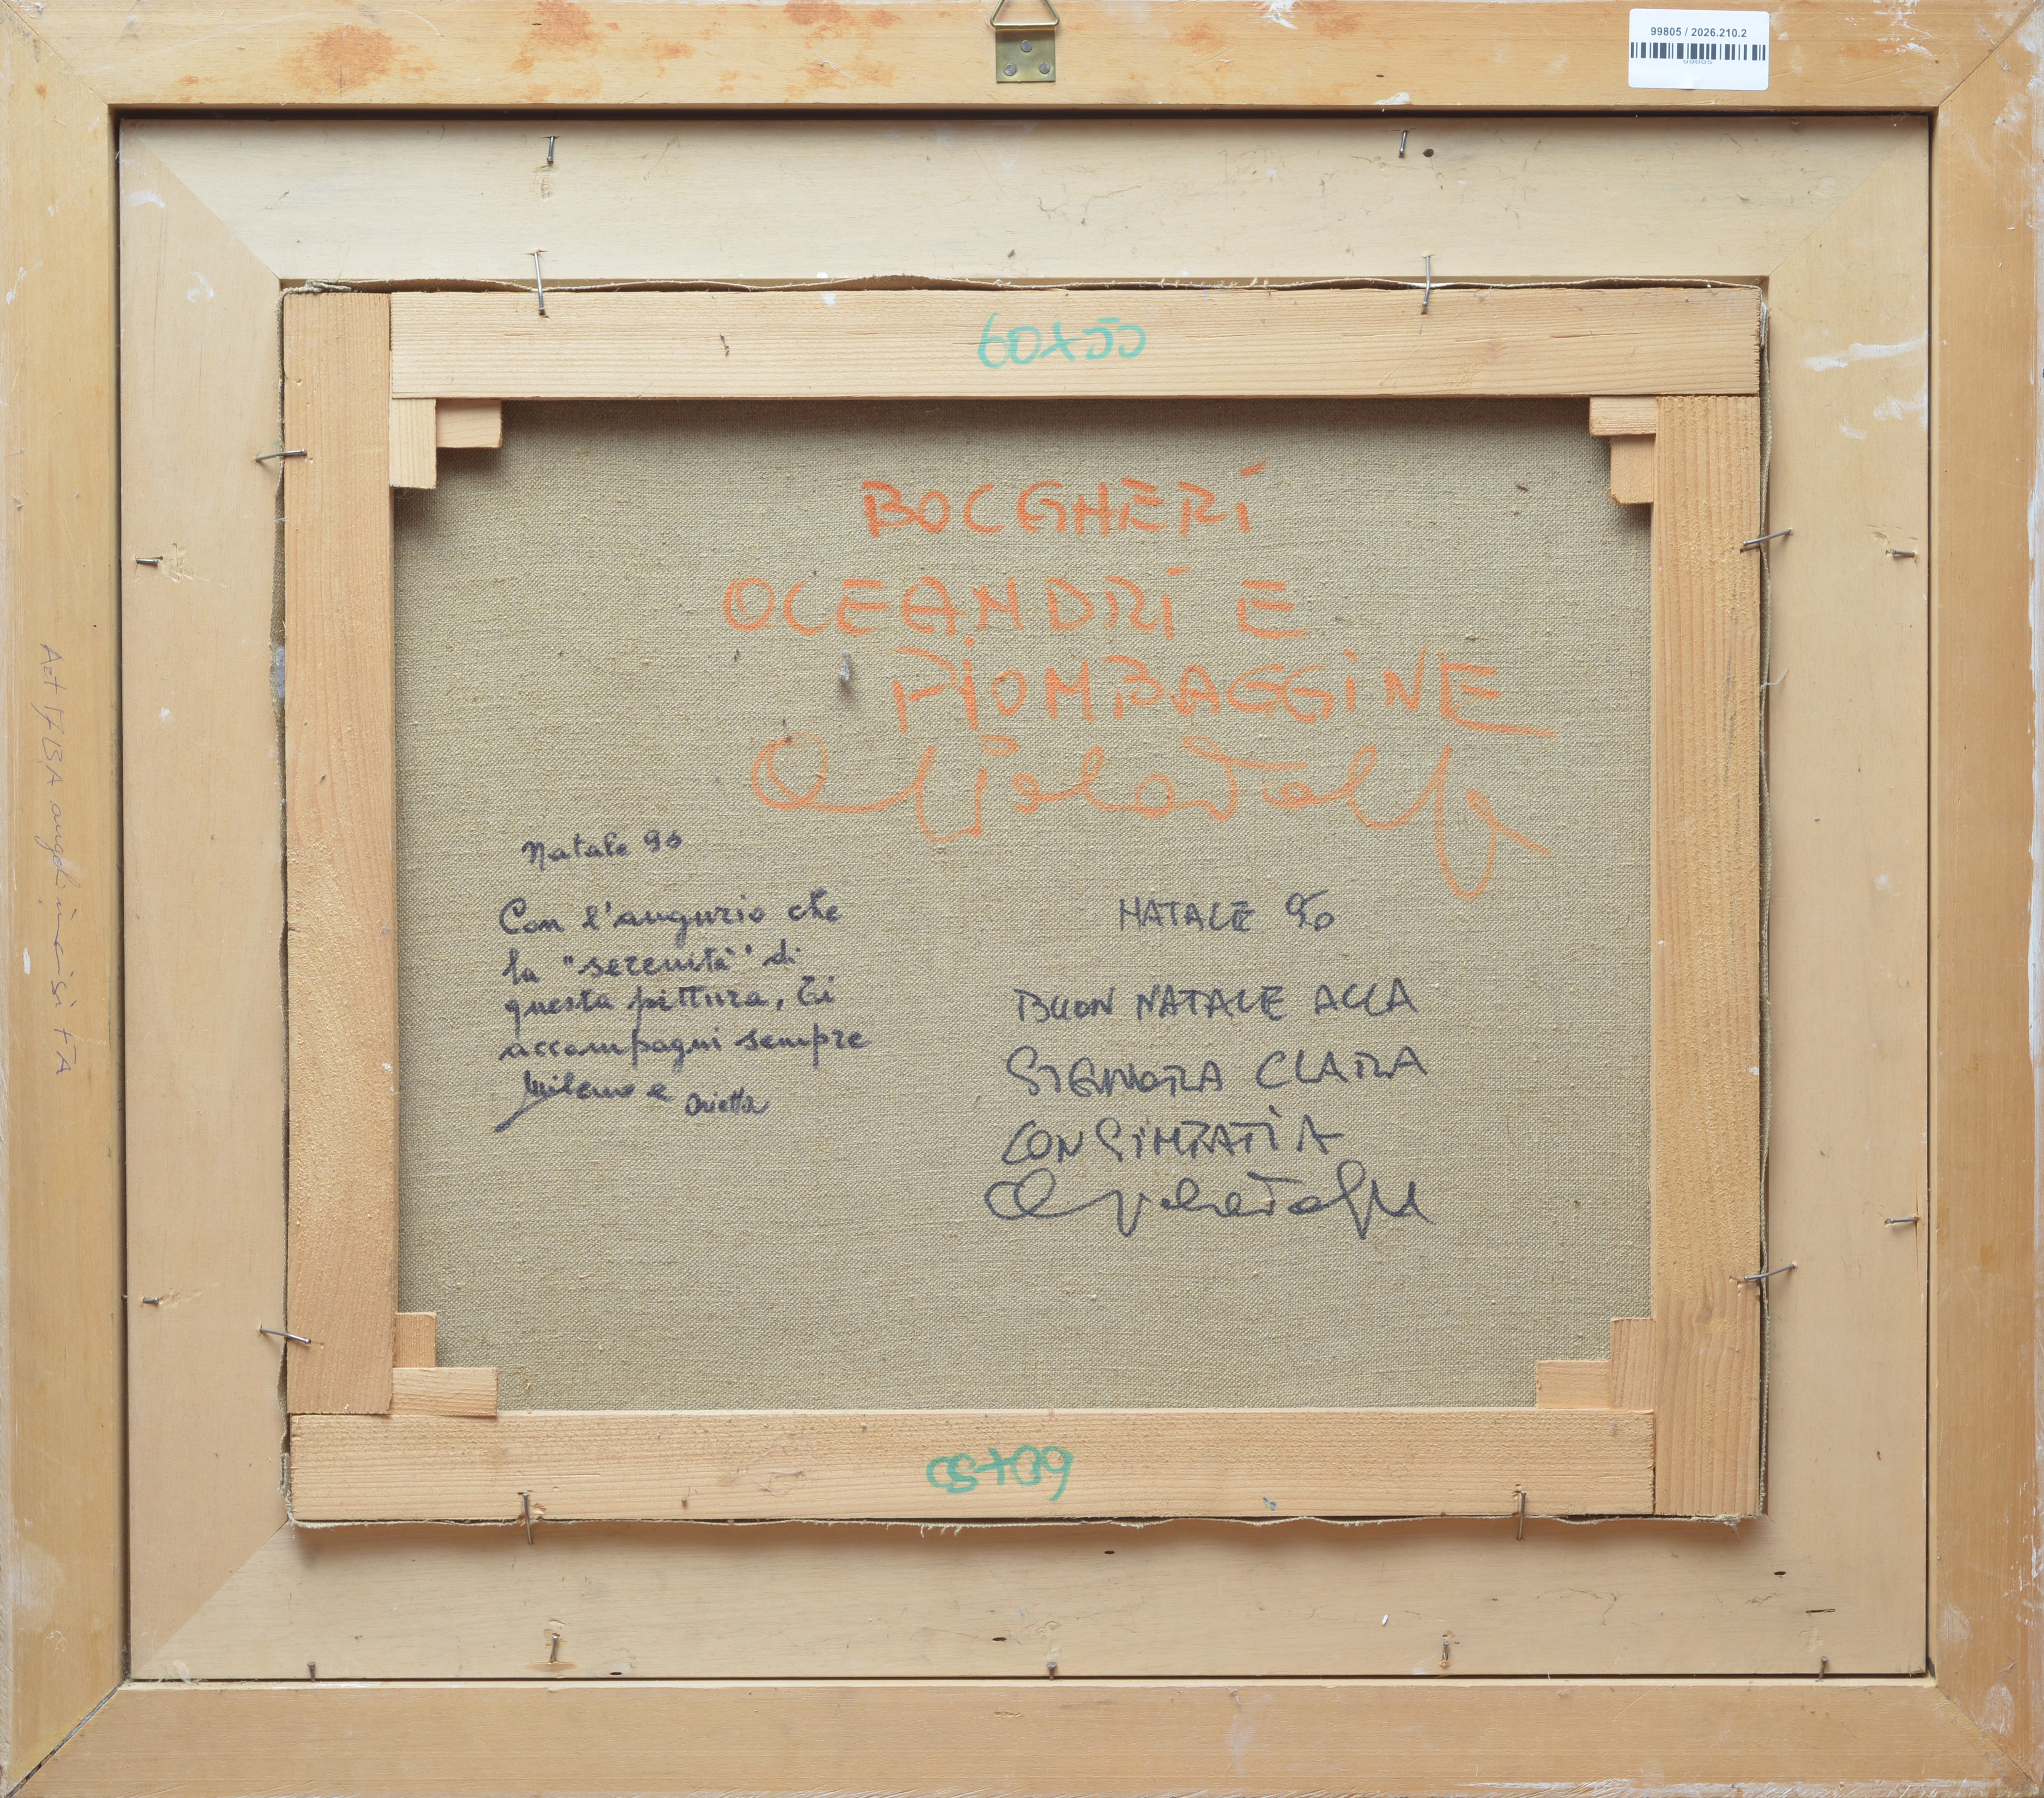 99805 / 2026.210.2
99805
60x50
BOLGHERI
OLEANDRI E
PIOMBAGGINE
Natale 90
Con l'augurio che
la "serenità" di
questa pittura, ti
accompagni sempre
Milena e Orietta
NATALE 90
BUON NATALE ALLA
SIGNORA CLARA
CON SIMPATIA
60x50
Art 17 BA